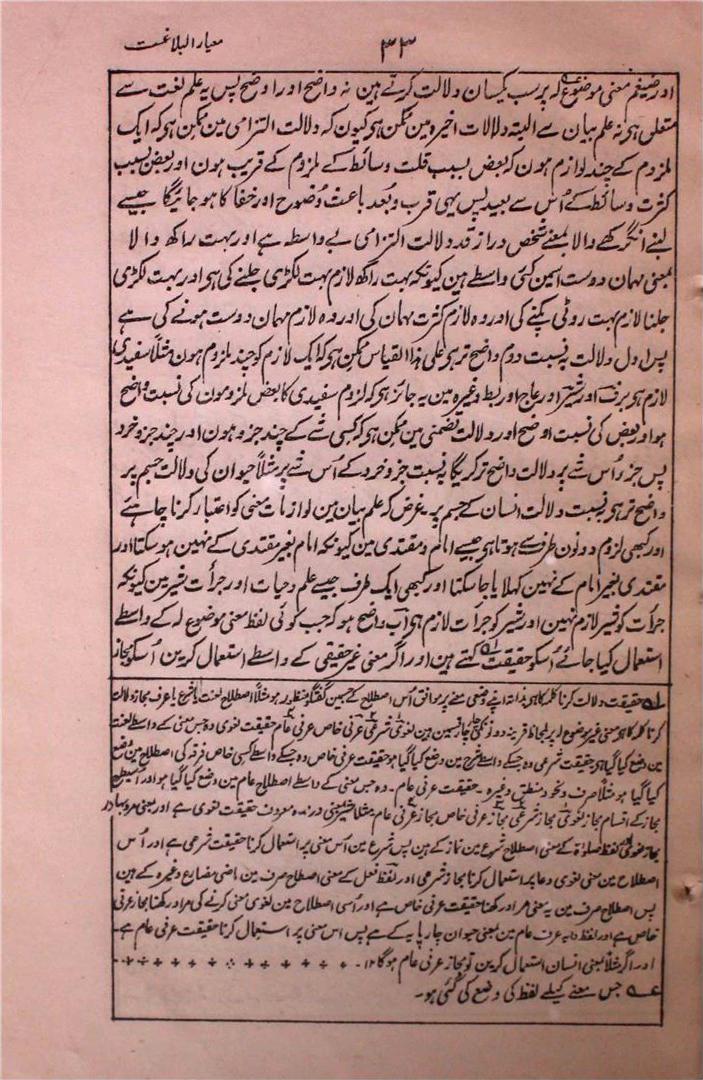 معیار البلاغت
۳۳
اور ضیغم معنی موضوع لہ پر سب یکسان دلالت کرتے ہین نہ واضح اور اوضح پس یہ علم لغت سے
متعلق ہی نہ علم بیان سے البتہ دلالات اخیرہ مین ممکن ہی کیون کہ دلالت التزامی مین ممکن ہی کہ ایک
ملزوم کے چند لوازم ہون کہ بعض بسبب قلت وسائط کے ملزوم کے قریب ہون اور بعض بسبب
کثرت وسائط کے اُس سے بعید پس یہی قرب و بُعد باعث وضوح اور خفا کا ہو جائیگا جیسے
لنبے انگرکھے والا بمعنے شخص دراز قد دلالت التزامی بے واسطہ ہے اور بہت راکھ والا
بمعنی مہمان دوست اسین کئی واسطے ہین کیونکہ بہت راکھ لازم بہت لکڑی جلنے کی ہی اور بہت لکڑی
جلنا لازم بہت روٹی پکنے کی اور وہ لازم کثرت مہمان کی اور وہ لازم مہمان دوست ہونے کی ہے
پس اول دلالت بہ نسبت دوم واضح تر ہی علی ہذا القیاس ممکن ہی کہ ایک لازم کو چند ملزوم ہون مثلاً سفیدی
لازم ہی برف اور شیر اور عاج اور بط وغیرہ مین یہ جائز ہی کہ لزوم سفیدی کا بعض ملزومون کی نسبت واضح
ہو اور بعض کی نسبت اوضح اور دلالت تضمنی مین ممکن ہی کہ کسی شے کے چند جزو ہون اور چند جزو خرد
پس جزر اُس شے پر دلالت واضح تر کریگا بہ نسبت جزو خرد کے اُس شے پر مثلاً حیوان کی دلالت جسم پر
واضح تر ہی بہ نسبت دلالت انسان کے جسم پر۔ غرض کہ علم بیان مین لوازمات معنی کو اعتبار کرنا چاہئے
اور کبھی لزوم دونون طرف سے ہوتا ہی جیسے امام و مقتدی مین کیونکہ امام بغیر مقتدی کے نہین ہو سکتا اور
مقتدی بغیر امام کے نہین کہلایا جا سکتا اور کبھی ایک طرف جیسے علم و حیات اور جرأت شیر مین کیونکہ
جرأت کو شیر لازم نہین اور شیر کو جرأت لازم ہی اب واضح ہو کہ جب کوئی لفظ معنی موضوع لہ کے واسطے
استعمال کیا جائے اُسکو حقیقت کہتے ہین اور اگر معنی غیر حقیقی کے واسطے استعمال کرین اُسکو مجاز
حقیقت دلالت کرنا کلمہ کا ہی بذاتہ اپنے وضعی معنے پر موافق اُس اصطلاح کے جسمین گفتگو منظور ہو مثلاً اصطلاح لغت یا شرع یا عرف مجاز دلالت
کرنا کلمہ کا ہی معنی غیر موضوع لہ پر لحاظ قرینہ دونونکی چار قسمین ہین لغوی شرعی عرفی خاص عرفی عام حقیقت لغوی وہ جس معنی کے واسطے لغت
مین وضع کیا گیا ہی حقیقت شرعی وہ جسکے واسطے شرع مین وضع کیا گیا ہو حقیقت عرفی خاص وہ جسکے واسطے کسی خاص فرقہ کی اصطلاح مین وضع
کیا گیا ہو مثلاً صرف و نحو و منطق وغیرہ۔ حقیقت عرفی عام۔ وہ جس معنی کے واسطے اصطلاح عام مین وضع کیا گیا ہو اور اسیطرح
مجاز کے اقسام مجاز لغوی مجاز شرعی مجاز عرفی خاص مجاز عرفی عام مثلاً شیر بمعنی درندہ معروف حقیقت لغوی ہے اور بمعنی مرد بہادر
مجاز لغوی لفظ صلوٰۃ کے معنی اصطلاح شرع مین نماز کے ہین پس شرع مین اُس معنی پر استعمال کرنا حقیقت شرعی ہے اور اُس
اصطلاح مین معنی لغوی دعا پر استعمال کرنا مجاز شرعی اور لفظ فعل کے معنی اصطلاح صرف مین ماضی مضارع وغیرہ کے ہین
پس اصطلاح صرف مین یہ معنی مراد رکھنا حقیقت عرفی خاص ہے اور اُسی اصطلاح مین لغوی معنی کرنے کی مراد رکھنا مجاز عرفی
خاص ہے اور لفظ دابہ عرف عام مین بمعنی حیوان چارپایہ کے ہے پس اس معنی پر استعمال کرنا حقیقت عرفی عام ہے۔
اور اگر مثلاً بمعنی انسان استعمال کرین تو مجاز عرفی عام ہوگا ۱۲۔
جس معنے کیلے لفظ کی وضع کی گئی ہو۔